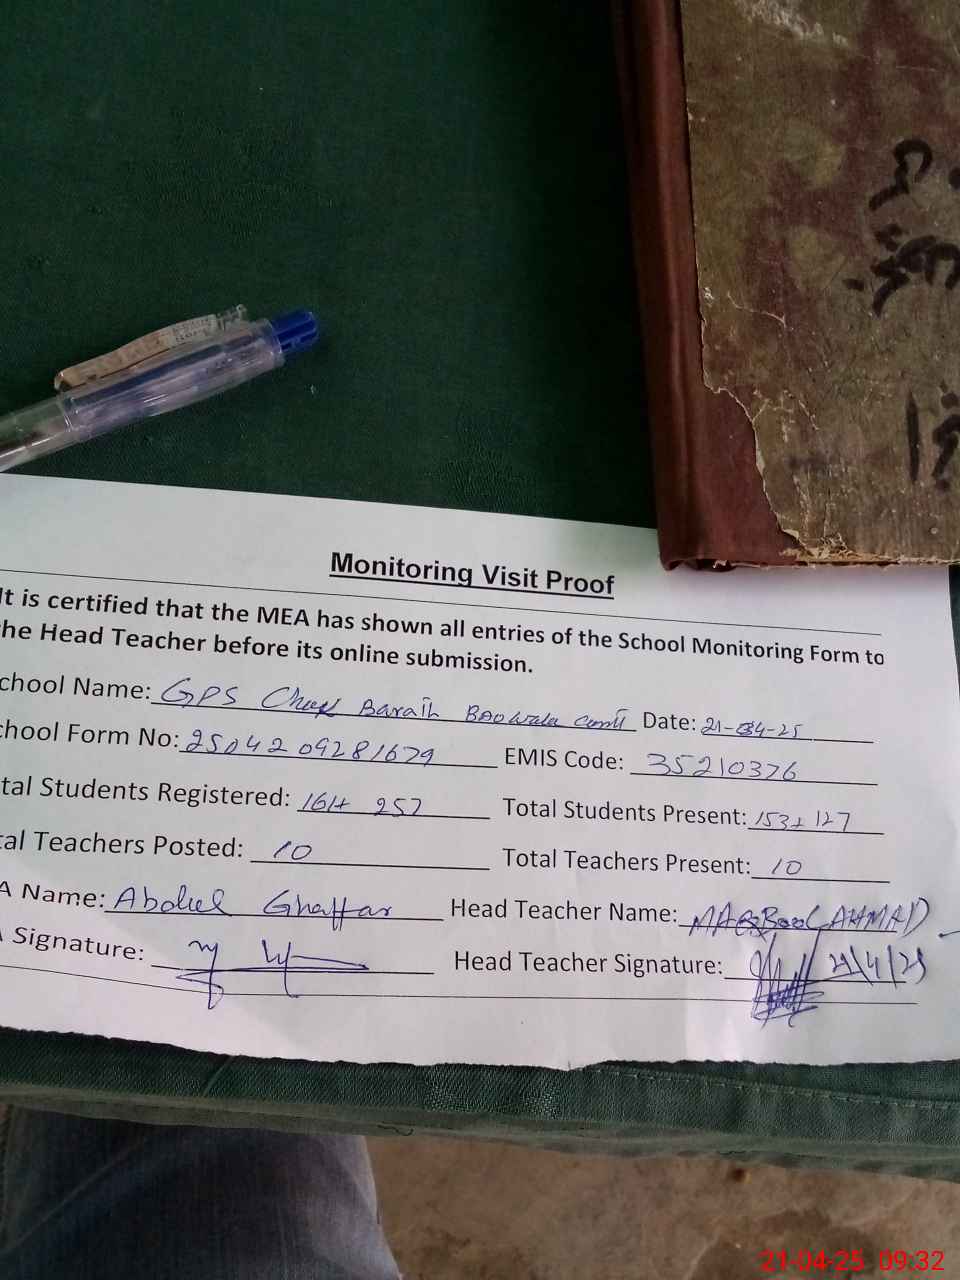 Monitoring Visit Proof
It is certified that the MEA has shown all entries of the School Monitoring Form to
he Head Teacher before its online submission.
chool Name: GPS Chak Barath Baowala Date: 21-04-25
chool Form No: 2504209281679 EMIS Code: 35210376
tal Students Registered: 164+ 257 Total Students Present: 153+127
tal Teachers Posted: 10 Total Teachers Present: 10
A Name: Abdul Ghaffar Head Teacher Name: MAQBOOL AHMAD
Signature: Head Teacher Signature: 21/4/25
21-04-25 09:32